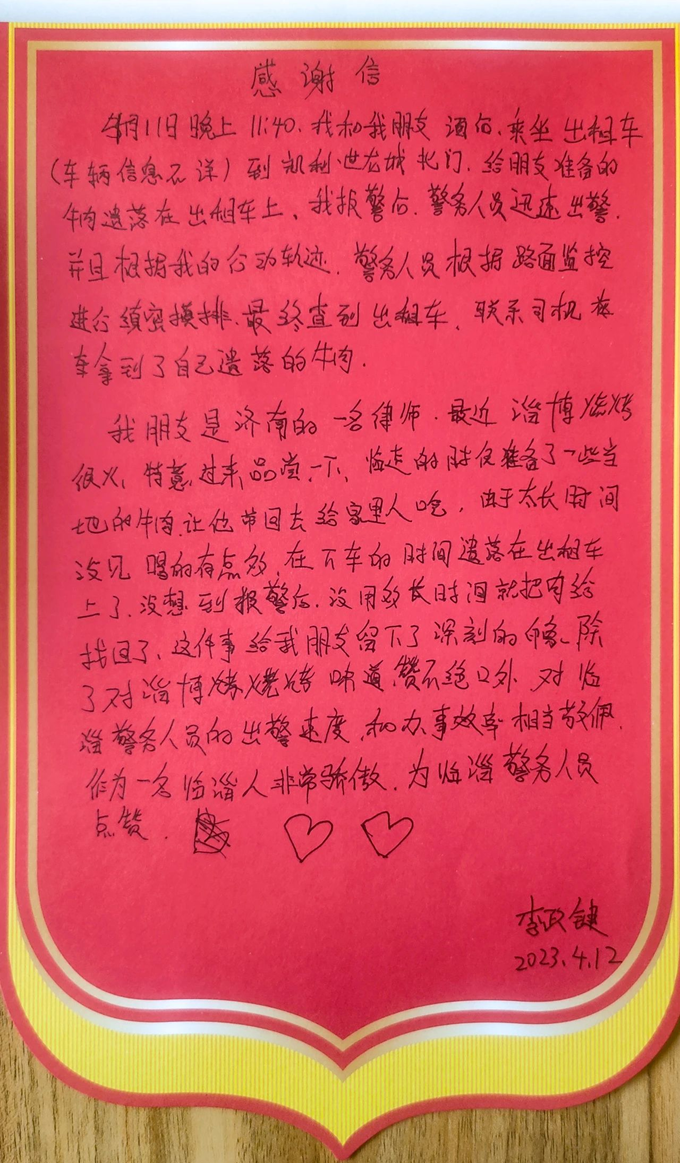 感谢信
4月11日晚上11:40.我和我朋友酒后.乘坐出租车
(车辆信息不详)到凯利世龙城北门.给朋友准备的
牛肉遗落在出租车上、我报警后.警务人员迅速出警.
并且根据我的行动轨迹.警务人员根据路面监控
进行缜密摸排.最终查到出租车、联系司机
车拿到了自己遗落的牛肉.
我朋友是济南的一名律师.最近淄博烧烤
很火、特意过来品尝一下、临走的时候准备了一些当
地的牛肉让他带回去给家里人吃,由于太长时间
没见 喝的有点多,在下车的时间遗落在出租车
上了、没想到报警后.没用多长时间就把肉给
找回了、这件事给我朋友留下了深刻的印象、除
了对淄博烧烤味道赞不绝口外.对临
淄警务人员的出警速度、和办事效率相当敬佩.
作为一名临淄人非常骄傲.为临淄警务人员
点赞.
李政键
2023.4.12